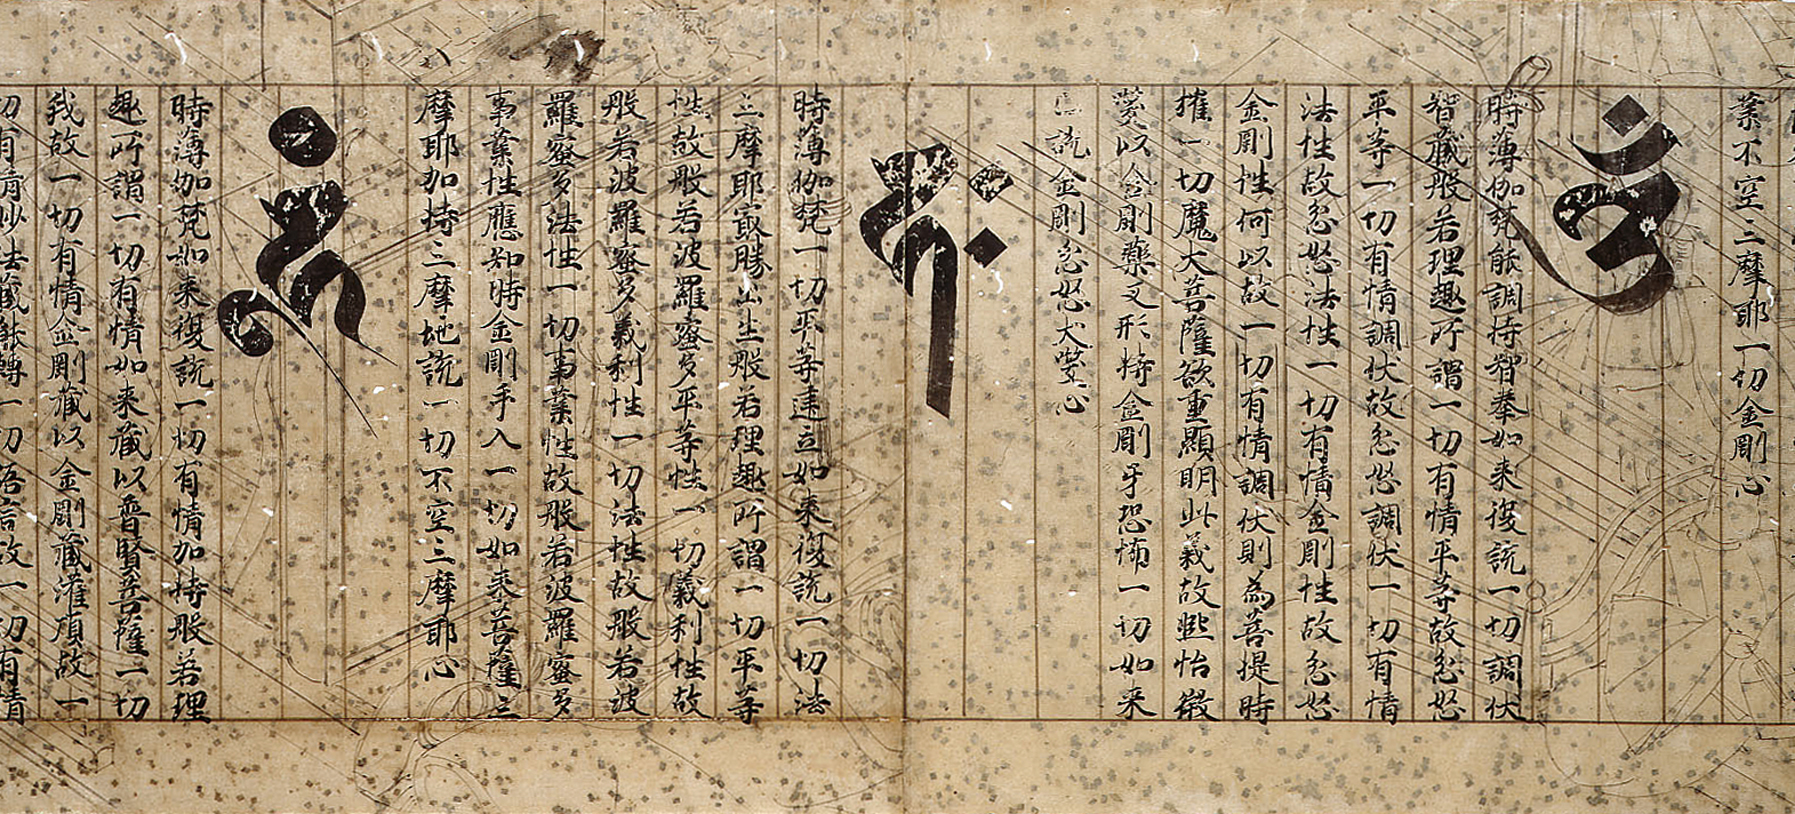 業不空三摩耶一切金剛心
時薄伽梵能調持智拳如来復說一切調伏
智藏般若理趣所謂一切有情平等故忿怒
平等一切有情調伏故忿怒調伏一切有情
法性故忿怒法性一切有情金剛性故忿怒
金剛性何以故一切有情調伏則為菩提時
摧一切魔大菩薩欲重顯明此義故熙怡微
笑以金剛藥叉形持金剛牙恐怖一切如来
已說金剛忿怒大笑心
時薄伽梵一切平等建立如来復說一切法
三摩耶最勝出生般若理趣所謂一切平等
性故般若波羅蜜多平等性一切義利性故
般若波羅蜜多義利性一切法性故般若波
羅蜜多法性一切事業性故般若波羅蜜多
事業性應知時金剛手入一切如来菩薩三
摩耶加持三摩地說一切不空三摩耶心
時薄伽梵如来復說一切有情加持般若理
趣所謂一切有情如来藏以普賢菩薩一切
我故一切有情金剛藏以金剛藏灌頂故一
切有情妙法藏能轉一切語言故一切有情